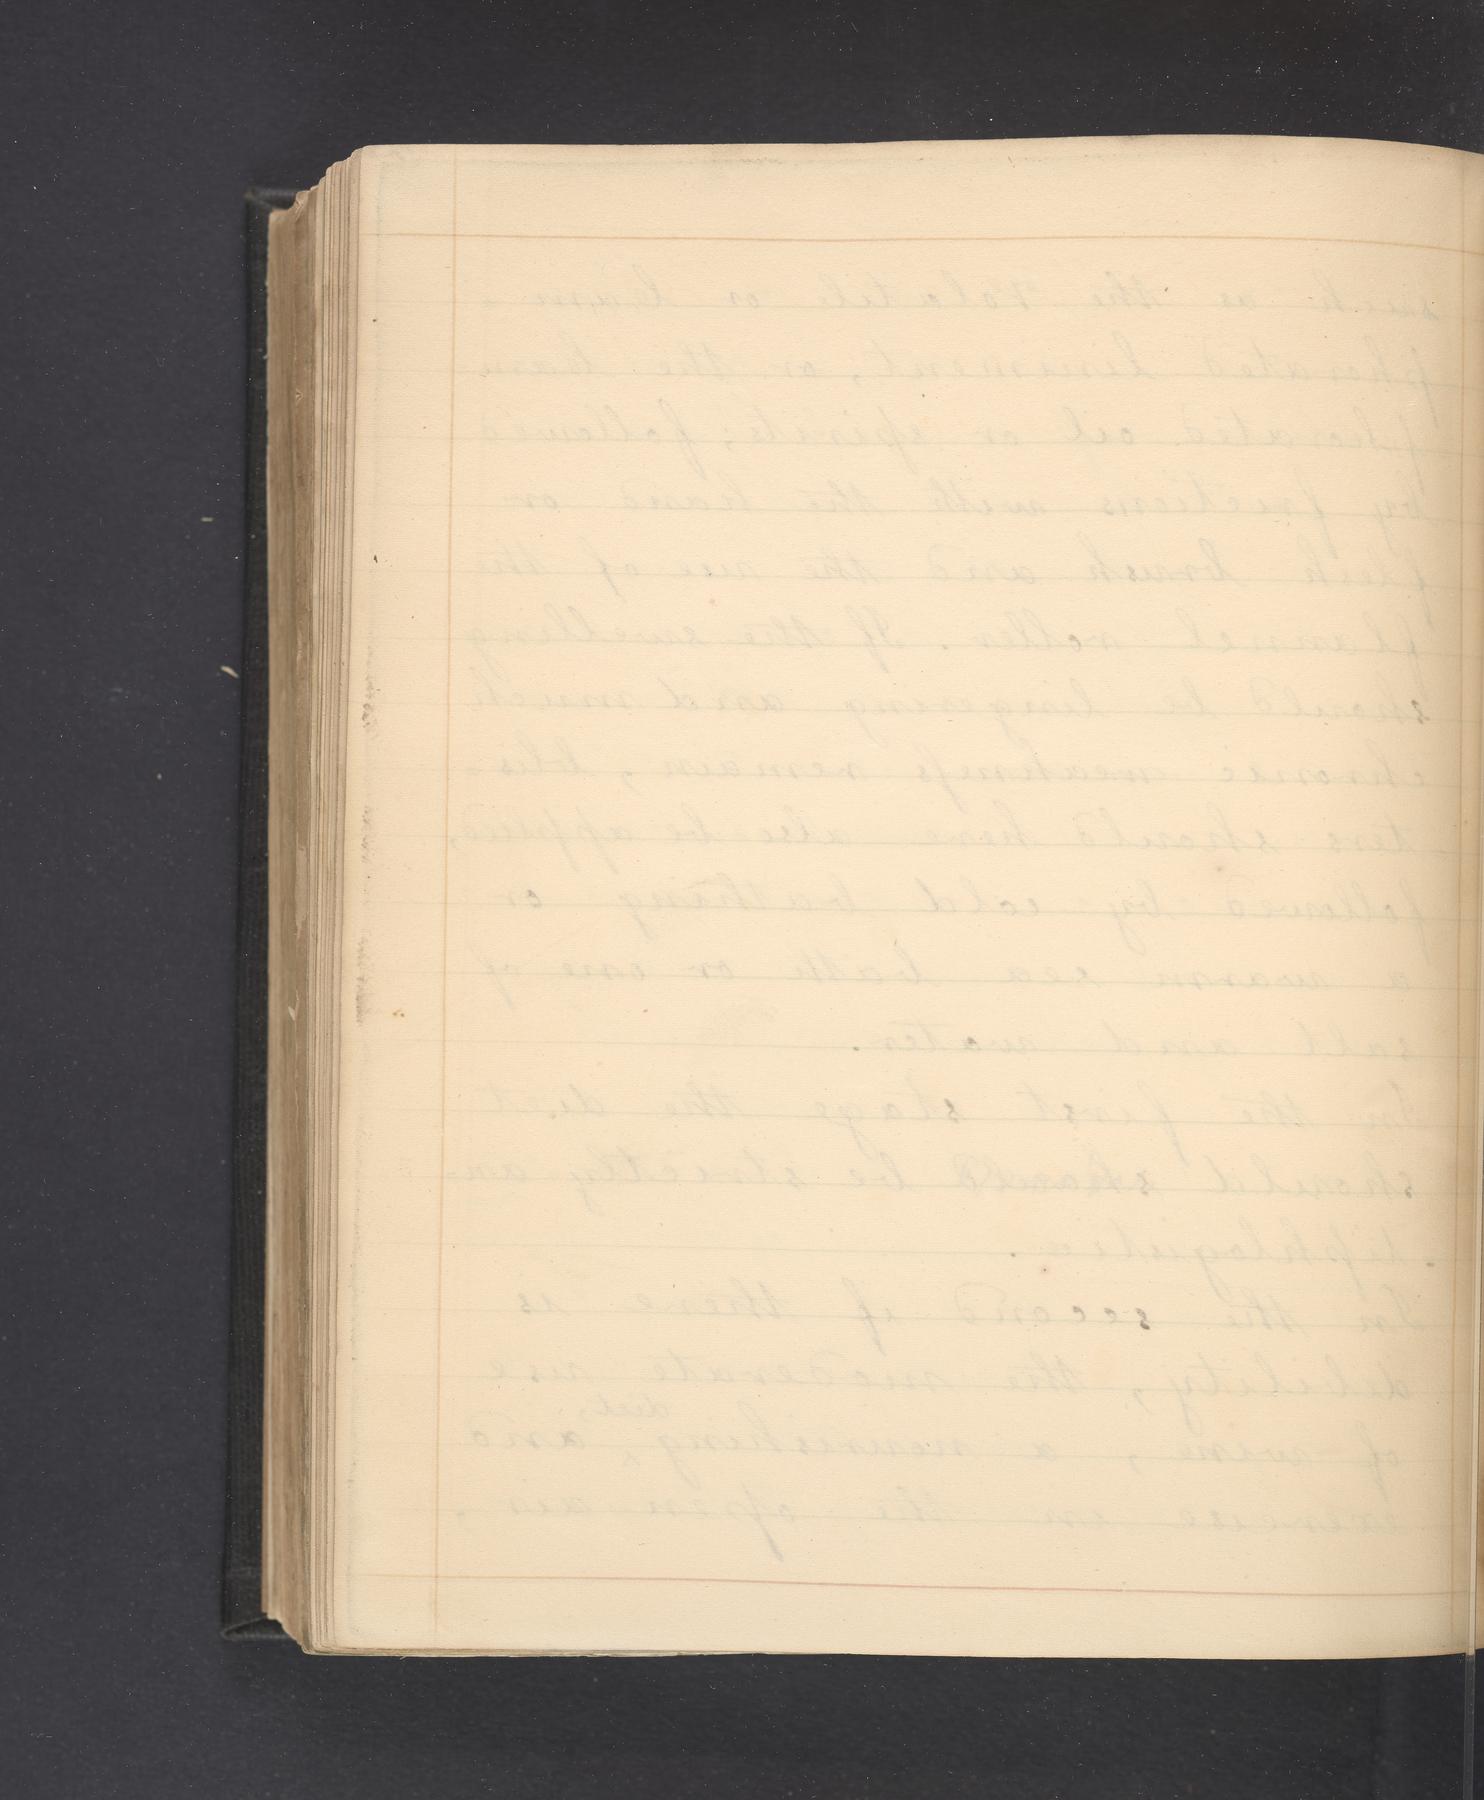 such as the volatile or cam-
phorated liniment, or the cam
phorated oil or spirits; followed
by frictions with the hand or
flesh brush and the use of the
flannel roller. If the swelling
should be lingering and much
chronic weakness remain, blis-
ters should here also be applied,
followed by cold bathing or
a warm sea bath or one of
salt and water.
In the first stage the diet
should should be strictly an-
tiphlogistic.
In the second if there is
debility, the moderate use
of wine, a nourishing ^ diet, and
exercise in the open air,